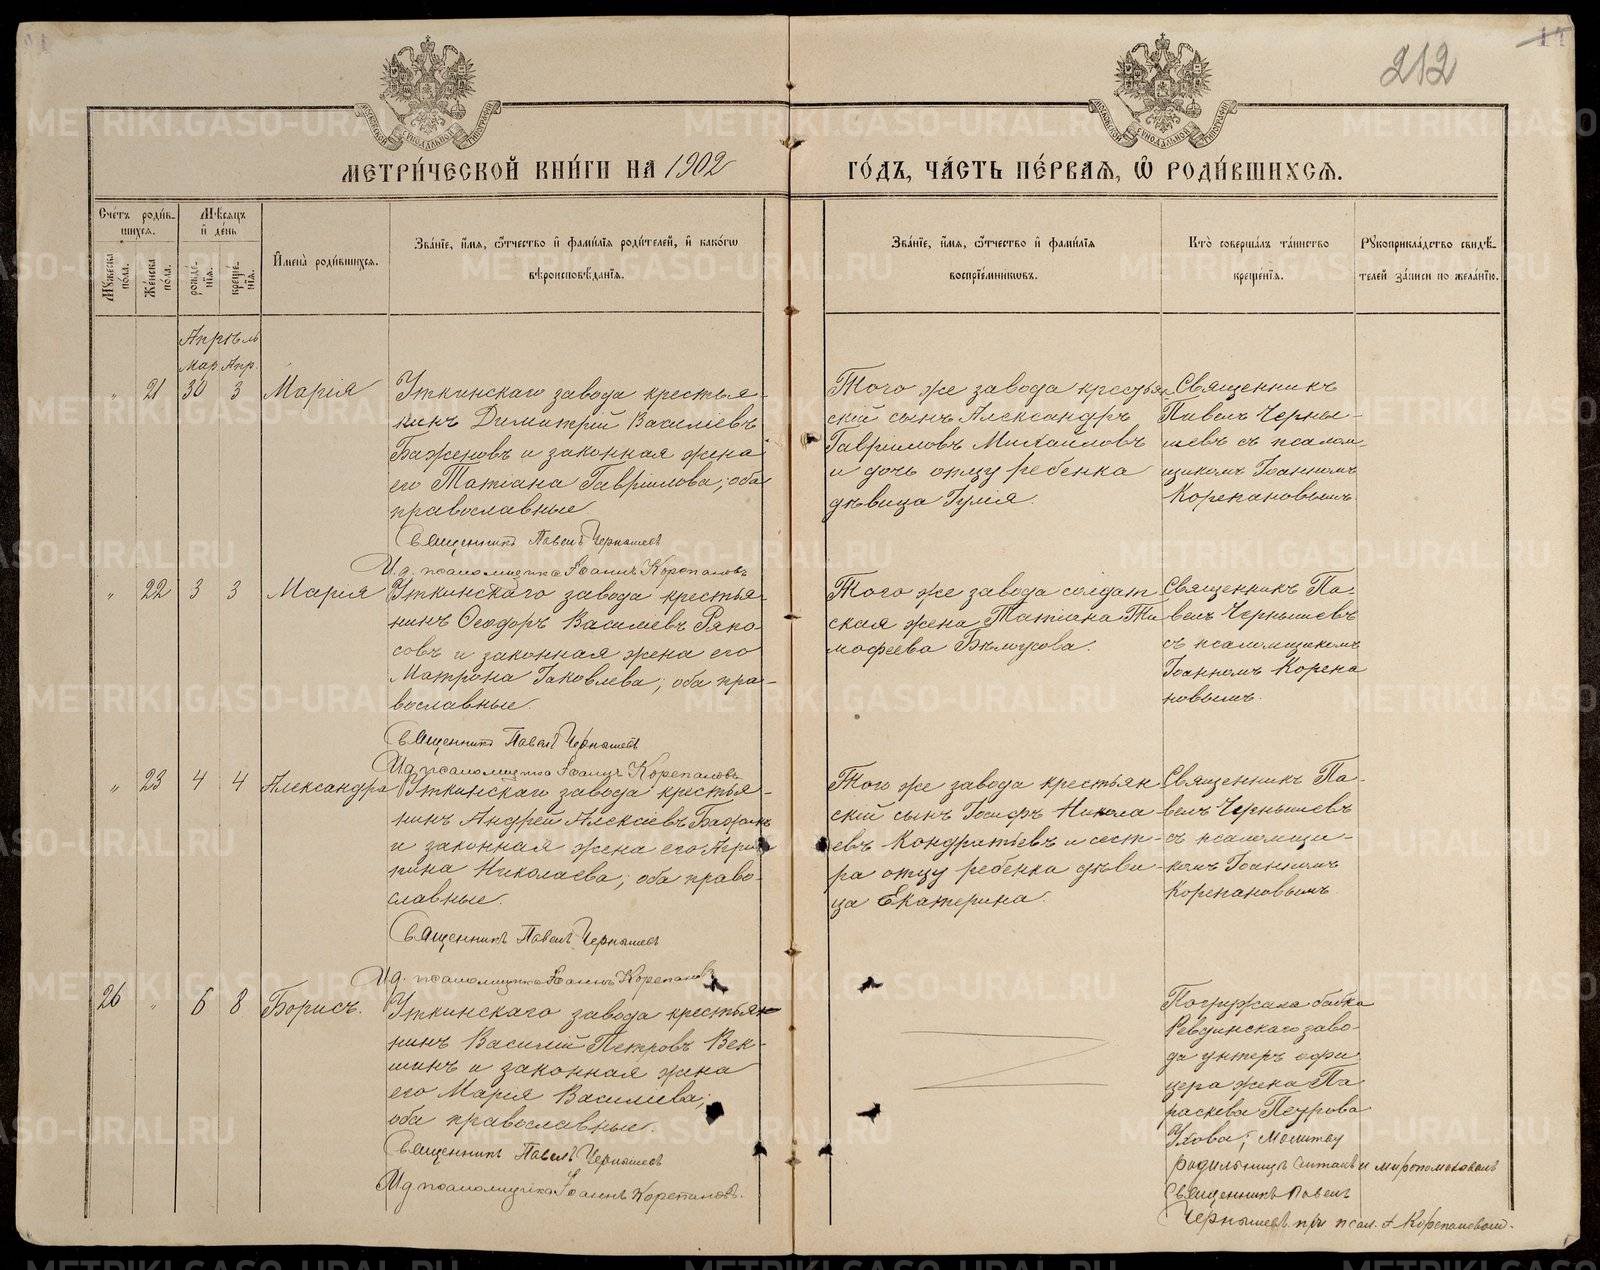 212
МЕТРИ́ЧЕСКОЙ КНИ́ГИ НА 1902
ГО́ДЪ, ЧА́СТЬ ПЕ́РВАѦ, Ѽ РОДИ́ВШИХСѦ.
Сче́тъ роди́в-
шихсѧ.
Мѣ́сѧцъ
и҆ де́нь
Мꙋ́жеска по́ла.
Же́нска по́ла.
рожде́нїѧ.
креще́нїѧ.
И҆мена̀ роди́вшихсѧ.
Зва́нїе, и҆́мѧ, ѻ҆́тчество и҆ фами́лїѧ роди́телей, и҆ како́гѡ
вѣроисповѣ́данїѧ.
Зва́нїе, и҆́мѧ, ѻ҆́тчество и҆ фами́лїѧ
воспрїе́мникѡвъ.
Кто̀ соверша́лъ та́инство
креще́нїѧ.
Рꙋкоприкла́дство свидѣ́-
телей за́писи по жела́нїю.
Апрѣль
Мар. Апр.
" 21 30 3 Марія
Уткинскаго завода крестья-
нинъ Димитрій Василіевъ
Баженовъ и законная жена
его Татіана Гавріилова; оба
православные.
Священникъ Павелъ Чернышевъ
И. д. псаломщика Іоаннъ Корепановъ
Того же завода крестьян
скій сынъ Александръ
Гавріиловъ Михайловъ
и дочь отцу ребенка
дѣвица Гулія.
Священникъ
Павелъ Черны-
шевъ съ псалом
щикомъ Іоанномъ
Корепановымъ.
" 22 3 3 Марія
Уткинскаго завода крестья-
нинъ Ѳеодоръ Василіевъ Ряпо-
совъ и законная жена его
Матрона Іаковлева; оба пра-
вославные.
Священникъ Павелъ Чернышевъ
И.д. псаломщика Іоаннъ Корепановъ
Того же завода солдат
ская жена Татіана Ти
мофеева Бѣлоусова.
Священникъ Па-
велъ Чернышевъ
съ псаломщикомъ
Іоанномъ Корепа
новымъ.
" 23 4 4 Александра
Уткинскаго завода крестья-
нинъ Андрей Алексіевъ Бажен
и законная жена его Агрип
пина Николаева; оба право-
славные.
Священникъ Павелъ Чернышевъ
И.д. псаломщика Іоаннъ Корепановъ
Того же завода крестьян
скій сынъ Іосифъ Никола
евъ Кондратіевъ и сест-
ра отцу ребенка дѣви-
ца Екатерина.
Священникъ Па-
велъ Чернышевъ
съ псаломщи-
комъ Іоанномъ
Корепановымъ
26 " 6 8 Борисъ.
Уткинскаго завода крестьян
нинъ Василій Петровъ Век-
шинъ и законная жена
его Марія Василіева;
оба православные.
Священникъ Павелъ Чернышевъ
И.д. псаломщика Іоаннъ Корепановъ.
Погружала бабка
Ревдинскаго заво-
да унтеръ офи
цера жена Па
раскева Петрова
Ухова; молитву
родильницѣ читалъ и миропомазовалъ
Священникъ Павелъ
Чернышевъ при псал. І. Корепановѣ.
METRIKI.GASO-URAL.RU